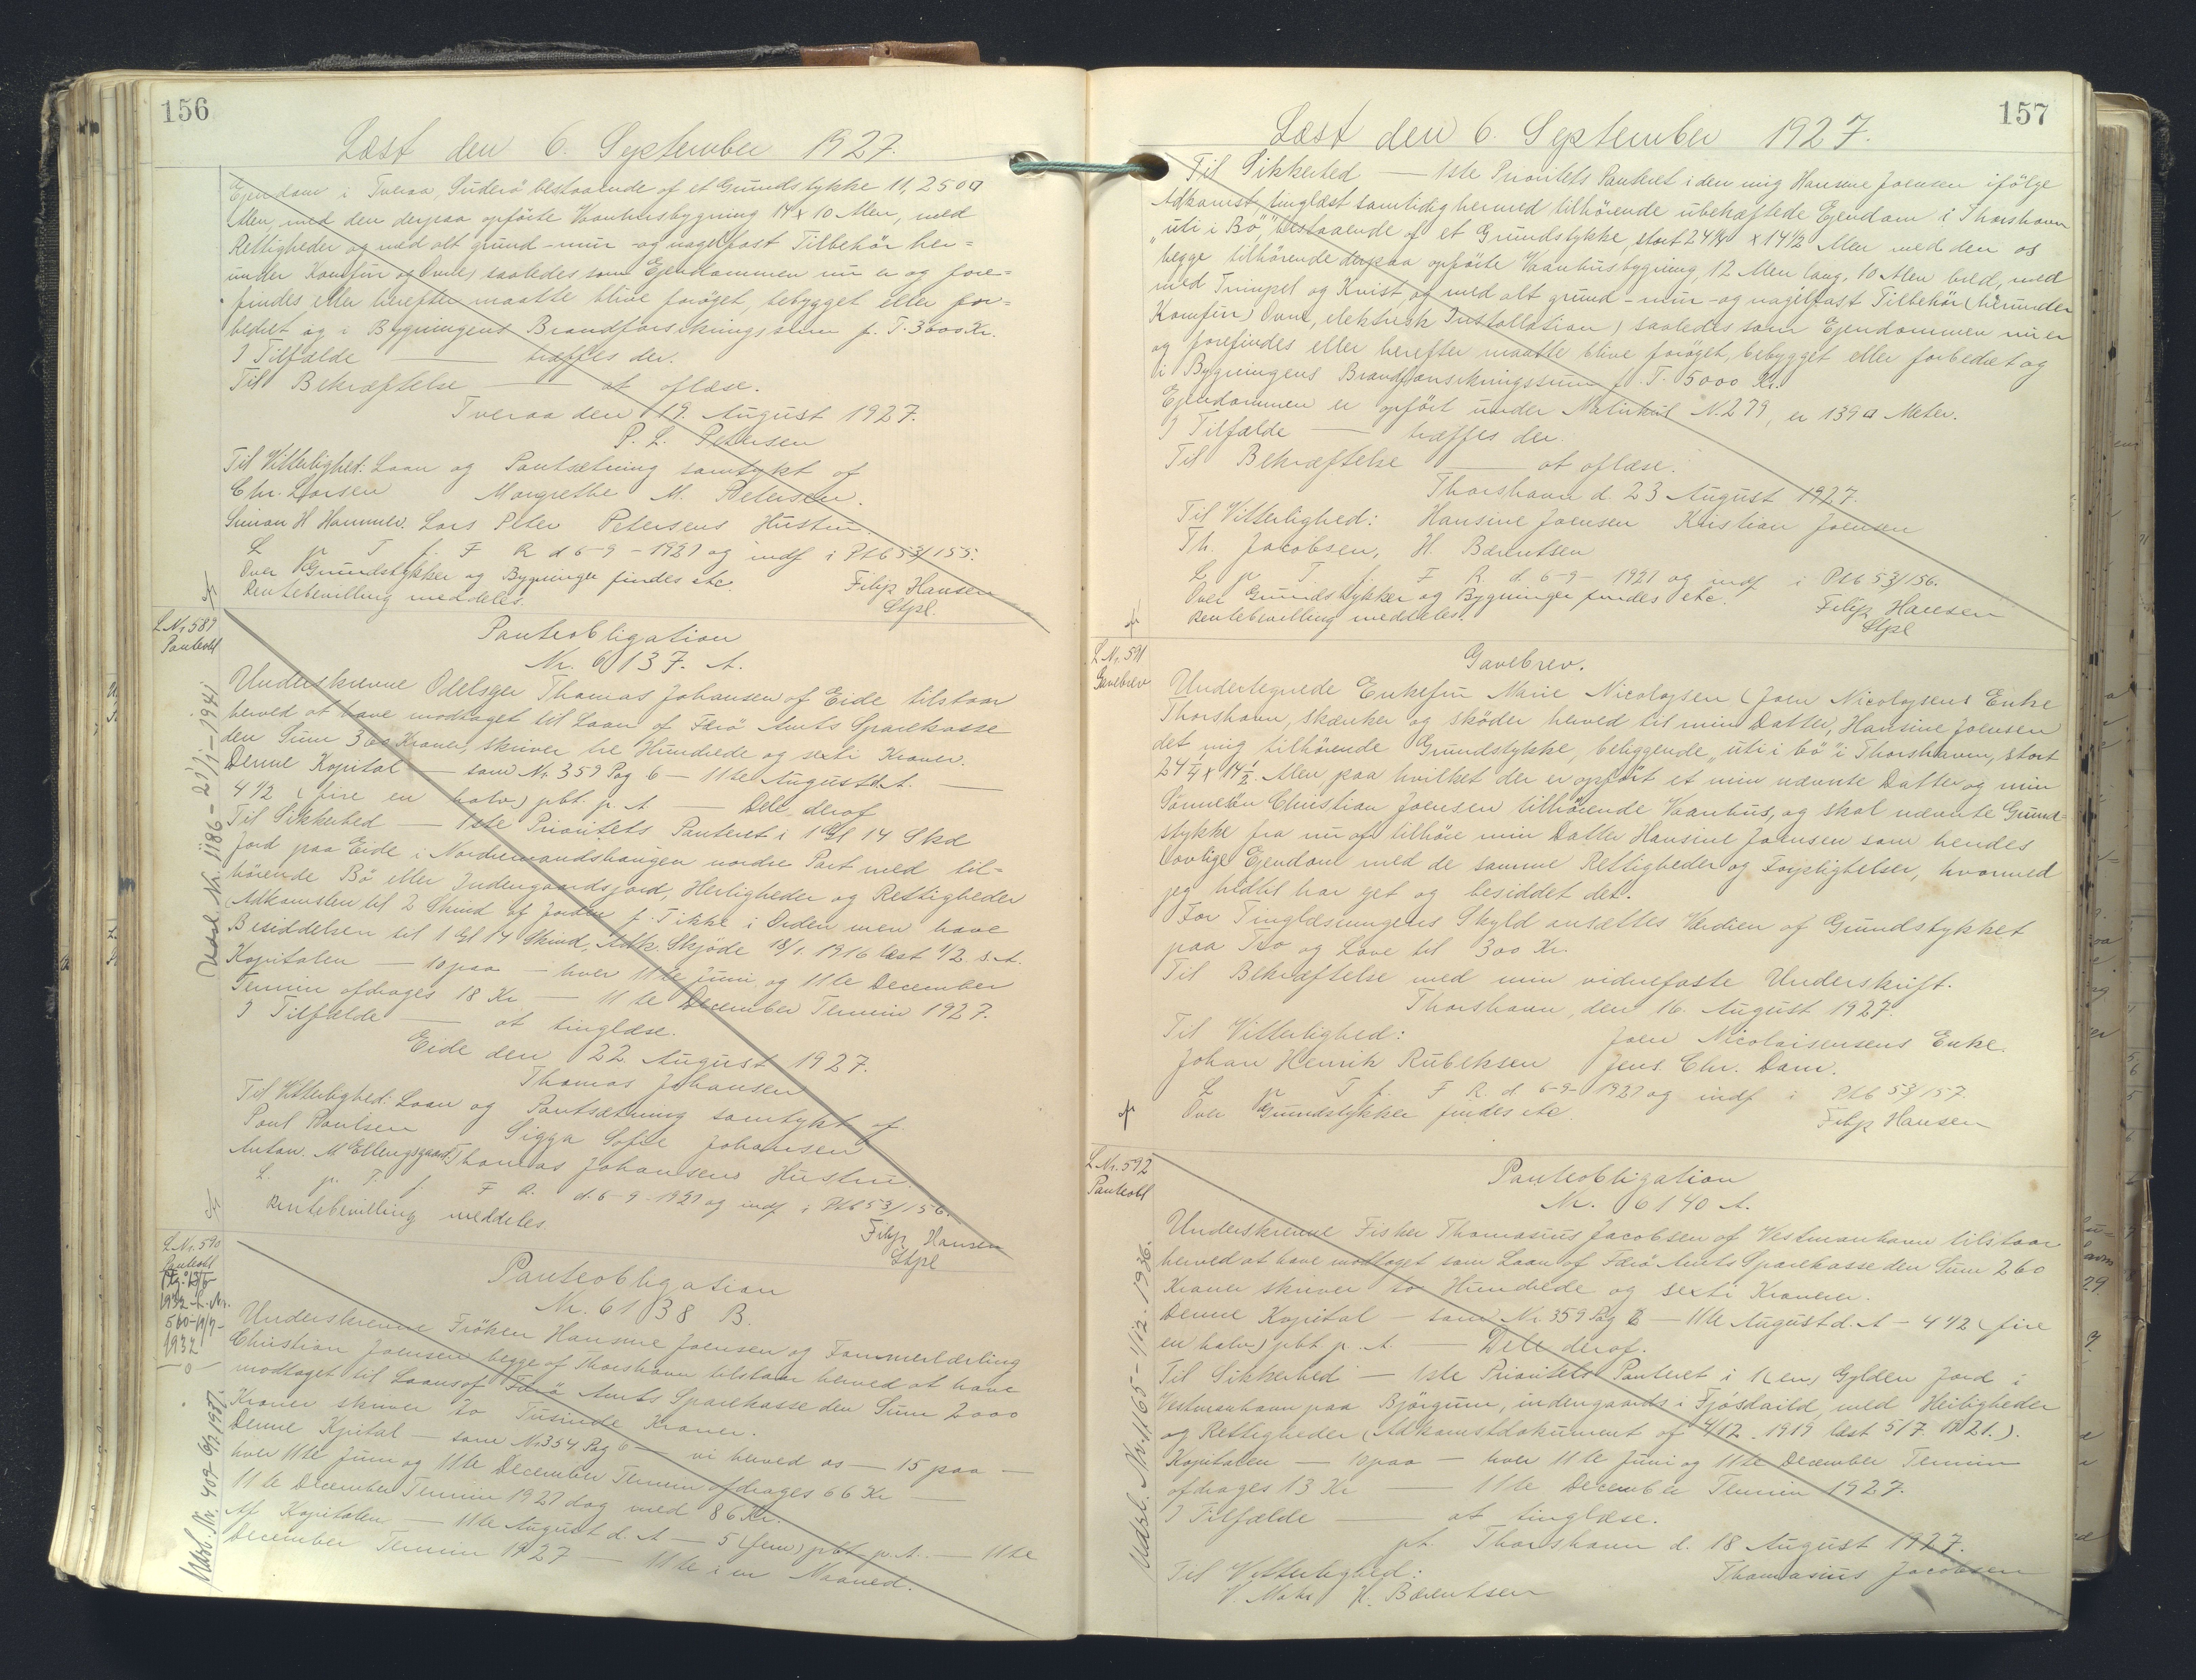 156
Læst den 6. September 1927.
Ejendom i Tveraa, Suderö bestaaende af et Grundstykke 11,250 □
Alen, med den derpaa opförte Vaanhusbygning 14 x 10 Alen, med
Rettigheder og med alt grund-mur-og nagelfast Tilbehör her=
under Komfur og Ovne) saaledes som Ejendommen nu er og fore=
findes eller herefter maatte blive foröget, bebygget eller for=
bedret og i Bygningens Brandforsikringssum p. T. 3000 Kr.
I Tilfælde — træffes der.
Til Bekræftelse — at aflæse.
Tveraa den 19. August 1927.
P. L. Petersen
Til Vitterlighed: Laan og Pantsætning samtykt af
Chr. Larsen Margrethe M. Petersen.
Simon H Hammer. Lars Peter Petersens Hustru.
L p T f. F R d 6-9-1927 og indf i Ptb 53/155.
Over Grundstykker og Bygninger findes etc. Filip Hansen
Rentebevilling meddeles. Stpl.
L.Nr 589
Panteobl
Udsl. Nr. 1186 - 23/1 - 1941
Panteobligation
Nr. 6137. A.
Underskrevne Odelsejer Thomas Johansen af Eide tilstaar
herved at have modtaget til Laan af Færö Amts Sparekasse
den Sum 360 Kroner, skriver tre Hundrede og sexti Kroner.
Denne Kapital — som Nr 359 Pag 6 — 11te August d. A. —
4 1/2 (fire en halv) pbt. p. A — Dele deraf
Til Sikkerhed — 1ste Prioritets Panteret i 1 Gl 14 Skd
Jord paa Eide i Nordurmandshaugen nordre Part med til=
hörende Bö eller Indengaardsjord, Herligheder og Rettigheder
(Adkomsten til 2 Skind af Jorden p. T ikke i Orden men have
Besiddelsen til 1 Gl 14 Skind, Adk. Skjöde 18/1. 1916 læst 1/2 s.A.
Kapitalen — 10 paa — hver 11te Juni og 11te December
Termin afdrages 18 Kr — 11te December Termin 1927.
I Tilfælde — at tinglæse.
Eide den 22. August 1927.
Thomas Johansen
Til Vitterlighed: Laan og Pantsætning samtykt af
Poul Poulsen Sigga Sofie Johansen
Anton. M Ellengsgaard. Thomas Johansens Hustru.
L. p. T. f. F R. d. 6-9-1927 og indf i Ptb 53/156.
Rentebevilling meddeles. Filip Hansen
Stpl
L.Nr. 590
Panteobl
1932 L. Nr.
560-19/7-
1932
Udsl. Nr. 409-6/7 1937.
Panteobligation
Nr. 6138 B.
Underskrevne Fröken Hansine Joensen og Tømmerlærling
Christian Joensen begge af Thorshavn tilstaar herved at have
modtaget til Laans af Færö Amts Sparekasse den Sum 2000
Kroner skriver to Tusinde Kroner.
Denne Kpital — som Nr 354 Pag 6 — vi herved os — 15 paa —
hver 11te Juni og 11te December Termin afdrages 66 Kr —
11te December Termin 1927 dog med 86 Kr.
Af Kapitalen — 11te August d. A — 5 (fem) pbt p. A. — 11te
December Termin 1927 — 11te i en Maaned.
157
Læst den 6. September 1927.
Til Sikkerhed — 1ste Prioritets Panteret i den mig Hansine Joensen ifölge
Adkomst, tinglæst samtidig hermed tilhörende ubehæftede Ejendom i Thorshavn
"uti i Bö" bestaaende af et Grundstykke, stort 24 1/4 x 14 1/2 Alen med den os
begge tilhörende derpaa opförte Vaanhusbygning, 12 Alen lang, 10 Alen bred, med
med Trempel og Kvist og med alt grund-mur-og nagelfast Tilbehör (herunder
Komfur, Ovne, elektrisk Installation) saaledes som Ejendommen nu er
og forefindes eller herefter maatte blive foröget, bebygget eller forbedret og
i Bygningens Brandforsikringssum p. T. 5000 Kr.
Ejendommen er opfört under Matrikul N. 279, er 139 □ Meter.
I Tilfælde — træffes der.
Til Bekræftelse — at aflæse.
Thorshavn d. 23 August 1927.
Til Vitterlighed: Hansine Joensen Kristian Joensen
Th. Jacobsen, H. Bærentsen
L p T f. F R. d. 6-9-1927 og indf i Ptb 53/156.
Over Grundstykker og Bygninger findes etc. Filip Hansen
Rentebevilling meddeles. Stpl
L.Nr. 591
Gavebrev
Gavebrev.
Undertegnede Enkefru Marie Nicolajsen (Joen Nicolajsens Enke
Thorshavn, skænker og sköder herved til min Datter, Hansine Joensen
det mig tilhörende Grundstykke, beliggende "uti i bö" i Thorshavn, stort
24 1/4 x 14 1/2 Alen paa hvilket der er opfört et min nævnte Datter og min
Sönnesön Christian Joensen tilhörende Vaanhus, og skal nævnte Grund=
stykke fra nu af tilhöre min Datter Hansine Joensen som hendes
lovlige Ejendom med de samme Rettigheder og Forpligtelser, hvormed
jeg hidtil har ejet og besiddet det.
For Tinglæsningens Skyld ansættes Værdien af Grundstykket
paa Tro og Love til 300 Kr.
Til Bekræftelse med min vidnefaste Underskrift.
Thorshavn, den 16. August 1927.
Til Vitterlighed: Joen Nicolaisensens Enke.
Johan Henrik Rubeksen Jens Chr. Dam.
L p T f. F R. d 6-9-1927 og indf i Ptb 53/157
Over Grundstykker findes etc. Filip Hansen
L.Nr. 592
Panteobl
Udsl. Nr. 1165-1/12. 1936.
Panteobligation
Nr. 6140 A.
Underskrevne Fisker Thomasius Jacobsen af Vestmanhavn tilstaar
herved at have modtaget som Laan af Færö Amts Sparekasse den Sum 260
Kroner skriver to Hundrede og sexti Kroner.
Denne Kapital — som Nr. 359 Pag 6 — 11te August d. A — 4 1/2 (fire
en halv) pbt p. A. — Dele deraf.
Til Sikkerhed — 1ste Prioritets Panteret i 1 (en) Gylden Jord i
Vestmanhavn paa Björgum, indengaards i Fjósdaild, med Herligheder
og Rettigheder (Adkomstdokument af 4/12. 1919 læst 5/7 1921.).
Kapitalen — 10 paa — hver 11te Juni og 11te December Termin
afdrages 13 Kr — 11te December Termin 1927.
I Tilfælde — at tinglæse.
pt. Thorshavn d. 18 August 1927.
Til Vitterlighed: Thomasius Jacobsen
V. Mohr H. Bærentsen